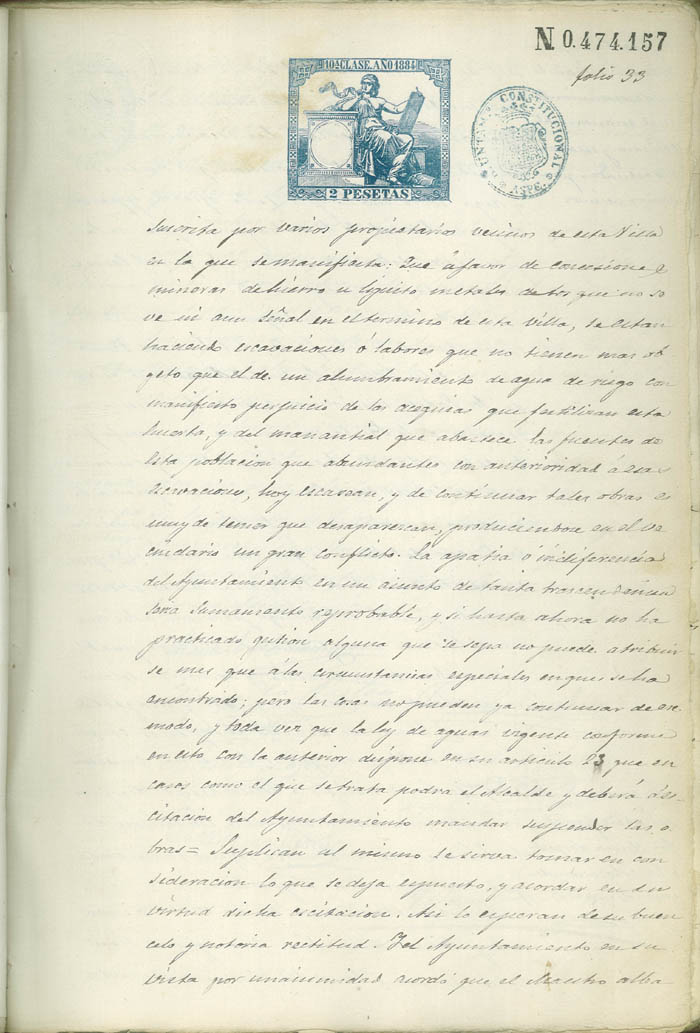 N 0.474.157
folio 33
10ª CLASE. AÑO 1884
2 PESETAS
CONSTITUCIONAL
ASPE
suscrita por varios propietarios vecinos de esta Villa
en la que se manifiesta: Que á favor de concesione
mineras de hierro u metales de los que no se
ve ni aun señal en el termino de esta villa, se estan
haciendo escavaciones ó labores que no tienen mas ob
geto que el de un alumbramiento de agua de riego con
manifiesto perjuicio de las acequias que fertilizan esta
huerta, y del manantial que abastece las fuentes de
esta poblacion que abundantes con anterioridad á esas
escavaciones, hoy escasean, y de continuar tales obras es
muy de temer que desaparezcan, produciendose en el ve
cindario un gran conflicto. La apatia ó indiferencia
del Ayuntamiento en un asunto de tanta trascendencia
seria sumamente reprobable, y si hasta ahora no ha
practicado gestion alguna que se sepa no puede atribuir
se mas que á las circunstancias especiales en que se ha
encontrado; pero las cosas no pueden ya continuar de ese
modo, y toda vez que la ley de aguas vigente conforme
en esto con la anterior dispone en su articulo 23 que en
casos como el que se trata podra el Alcalde y deberá á es-
citacion del Ayuntamiento mandar suspender las o
bras= Suplican al mismo se sirva tomar en con
sideracion lo que se deja espuesto, y acordar en su
virtud dicha escitacion. Asi lo esperan de su buen
celo y notoria rectitud. Y el Ayuntamiento en su
vista por unanimidad acordó que el Maestro alba-